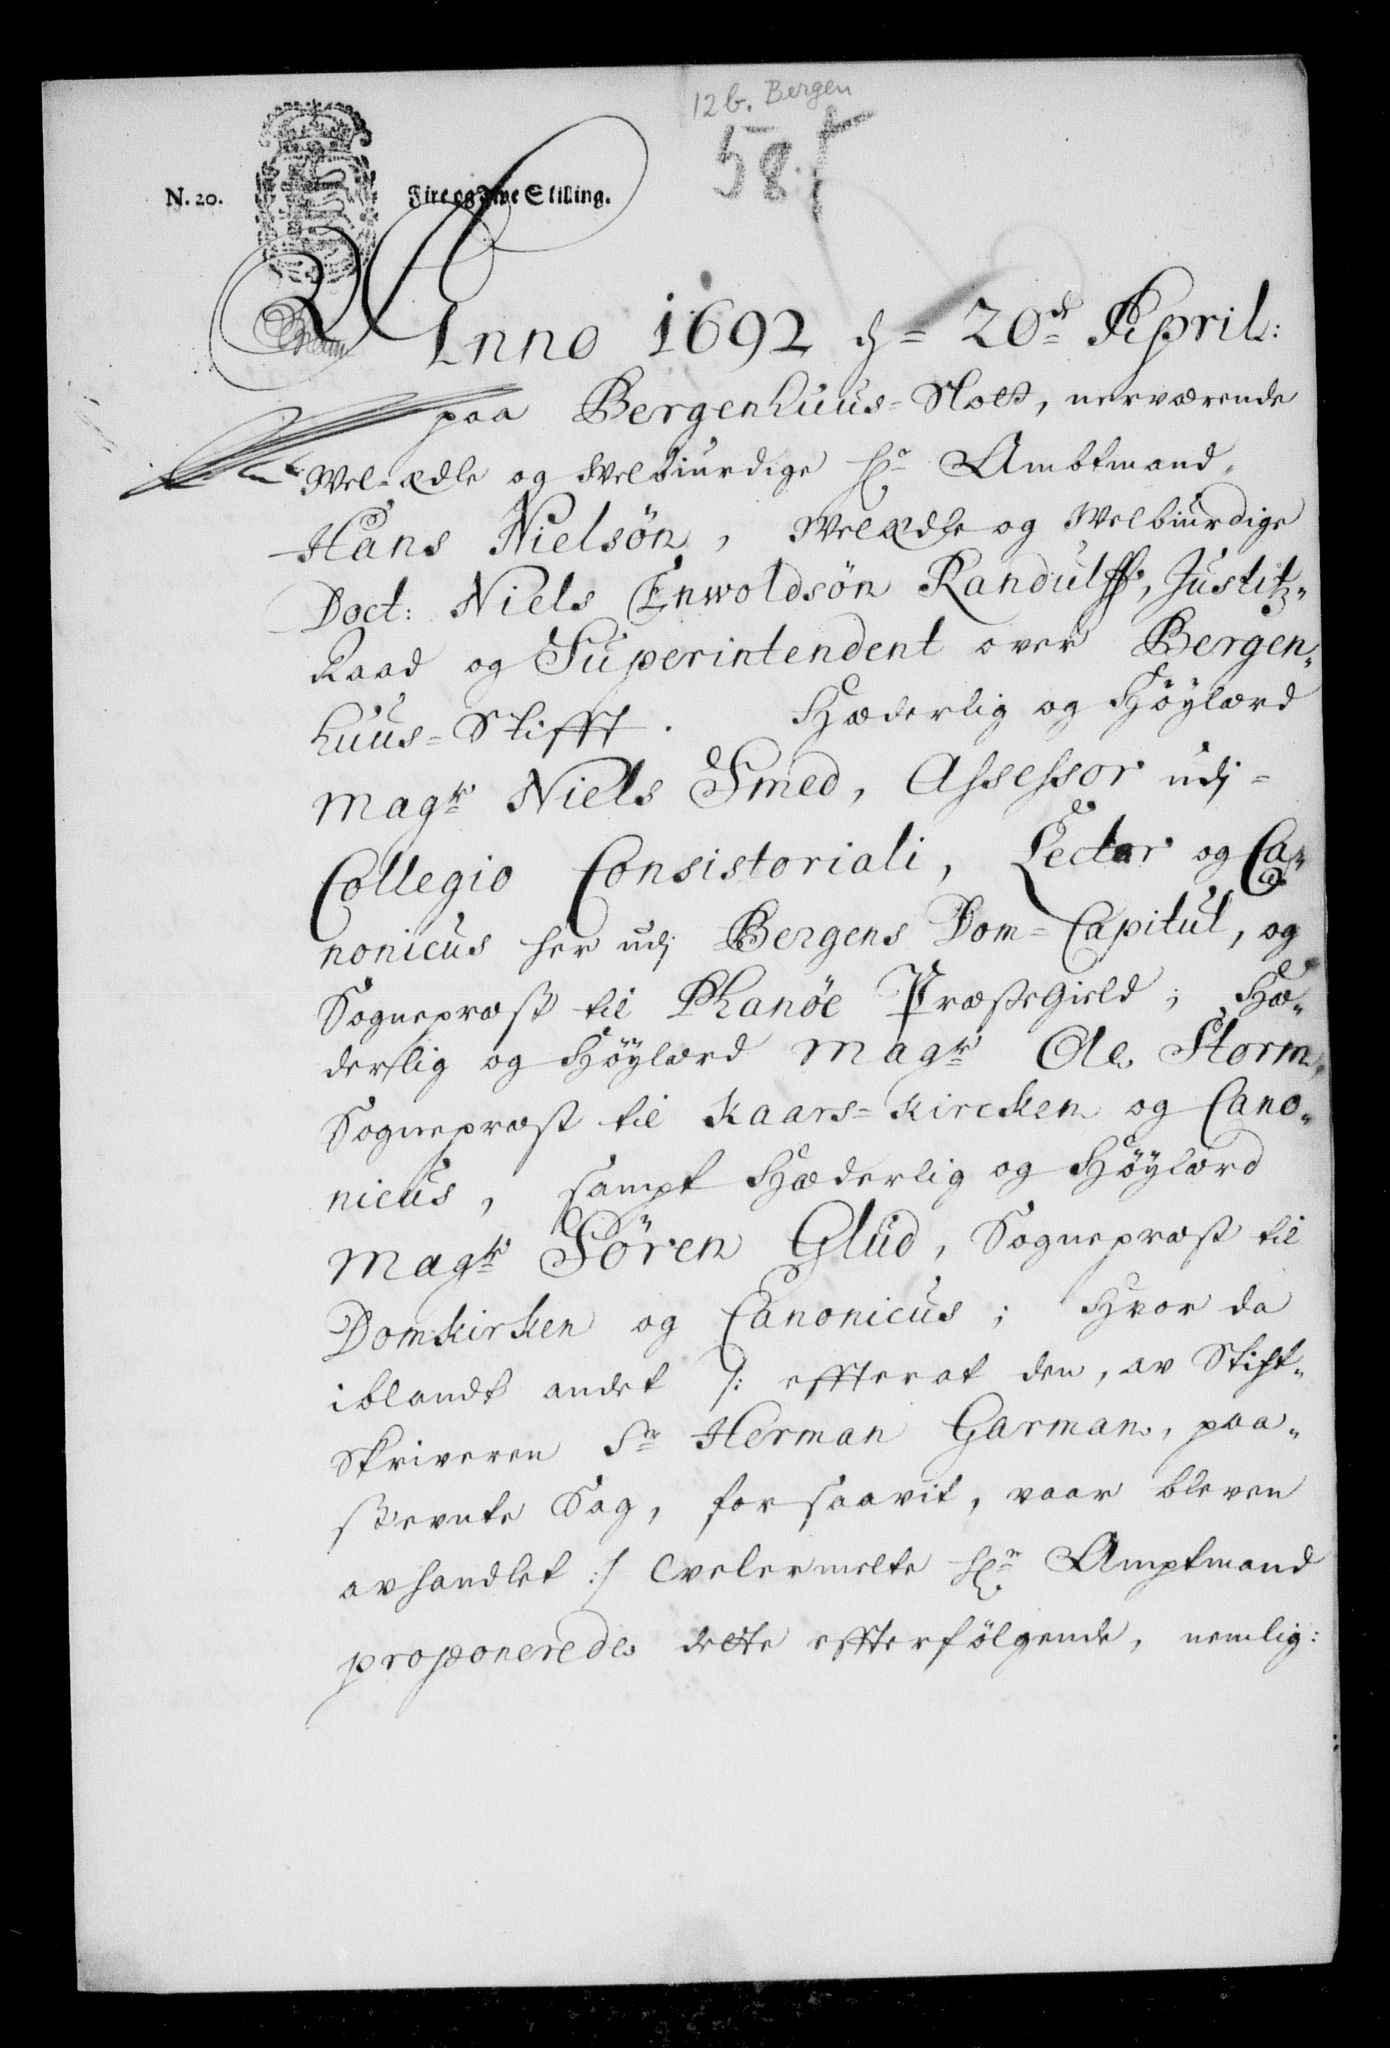 12b. Bergen
58.
N. 20.
Fire og Tive Skilling.
Anno 1692 d = 20de April:
paa Bergenhuus-Slott, nerværende
Wel-ædle og Welbiurdige Hr Ambtmand,
Hans Nielsön, Welædle og Welbiurdige
Doct: Niels Enwoldsön Randulff, Justitz-
Raad og Superintendent over Bergen-
huus-Stifft. Hæderlig og Höylærd
Magr Niels Smed, Assessor udj=
Collegio Consistoriali, Lector og Ca-
nonicus her udj Bergens Dom=Capitul, og
Sognepræst til Phanöe Præstegield; Hæ-
derlig og Höylærd Magr Ole Storm,
Sognepræst til Kaars=Kircken og Cano-
nicus, sampt Hæderlig og Höylærd
Magr Sören Glud, Sognepræst til
Domkirken og Canonicus; Hvor da
iblandt andet /: effterat den, av Stift-
skriveren Sr Herman Garman, paa-
stevnte Sag, for saavit, vaar bleven
avhandlet :/ velermelte Hr Amptmand
proponerede dette effterfölgende, nemlig: